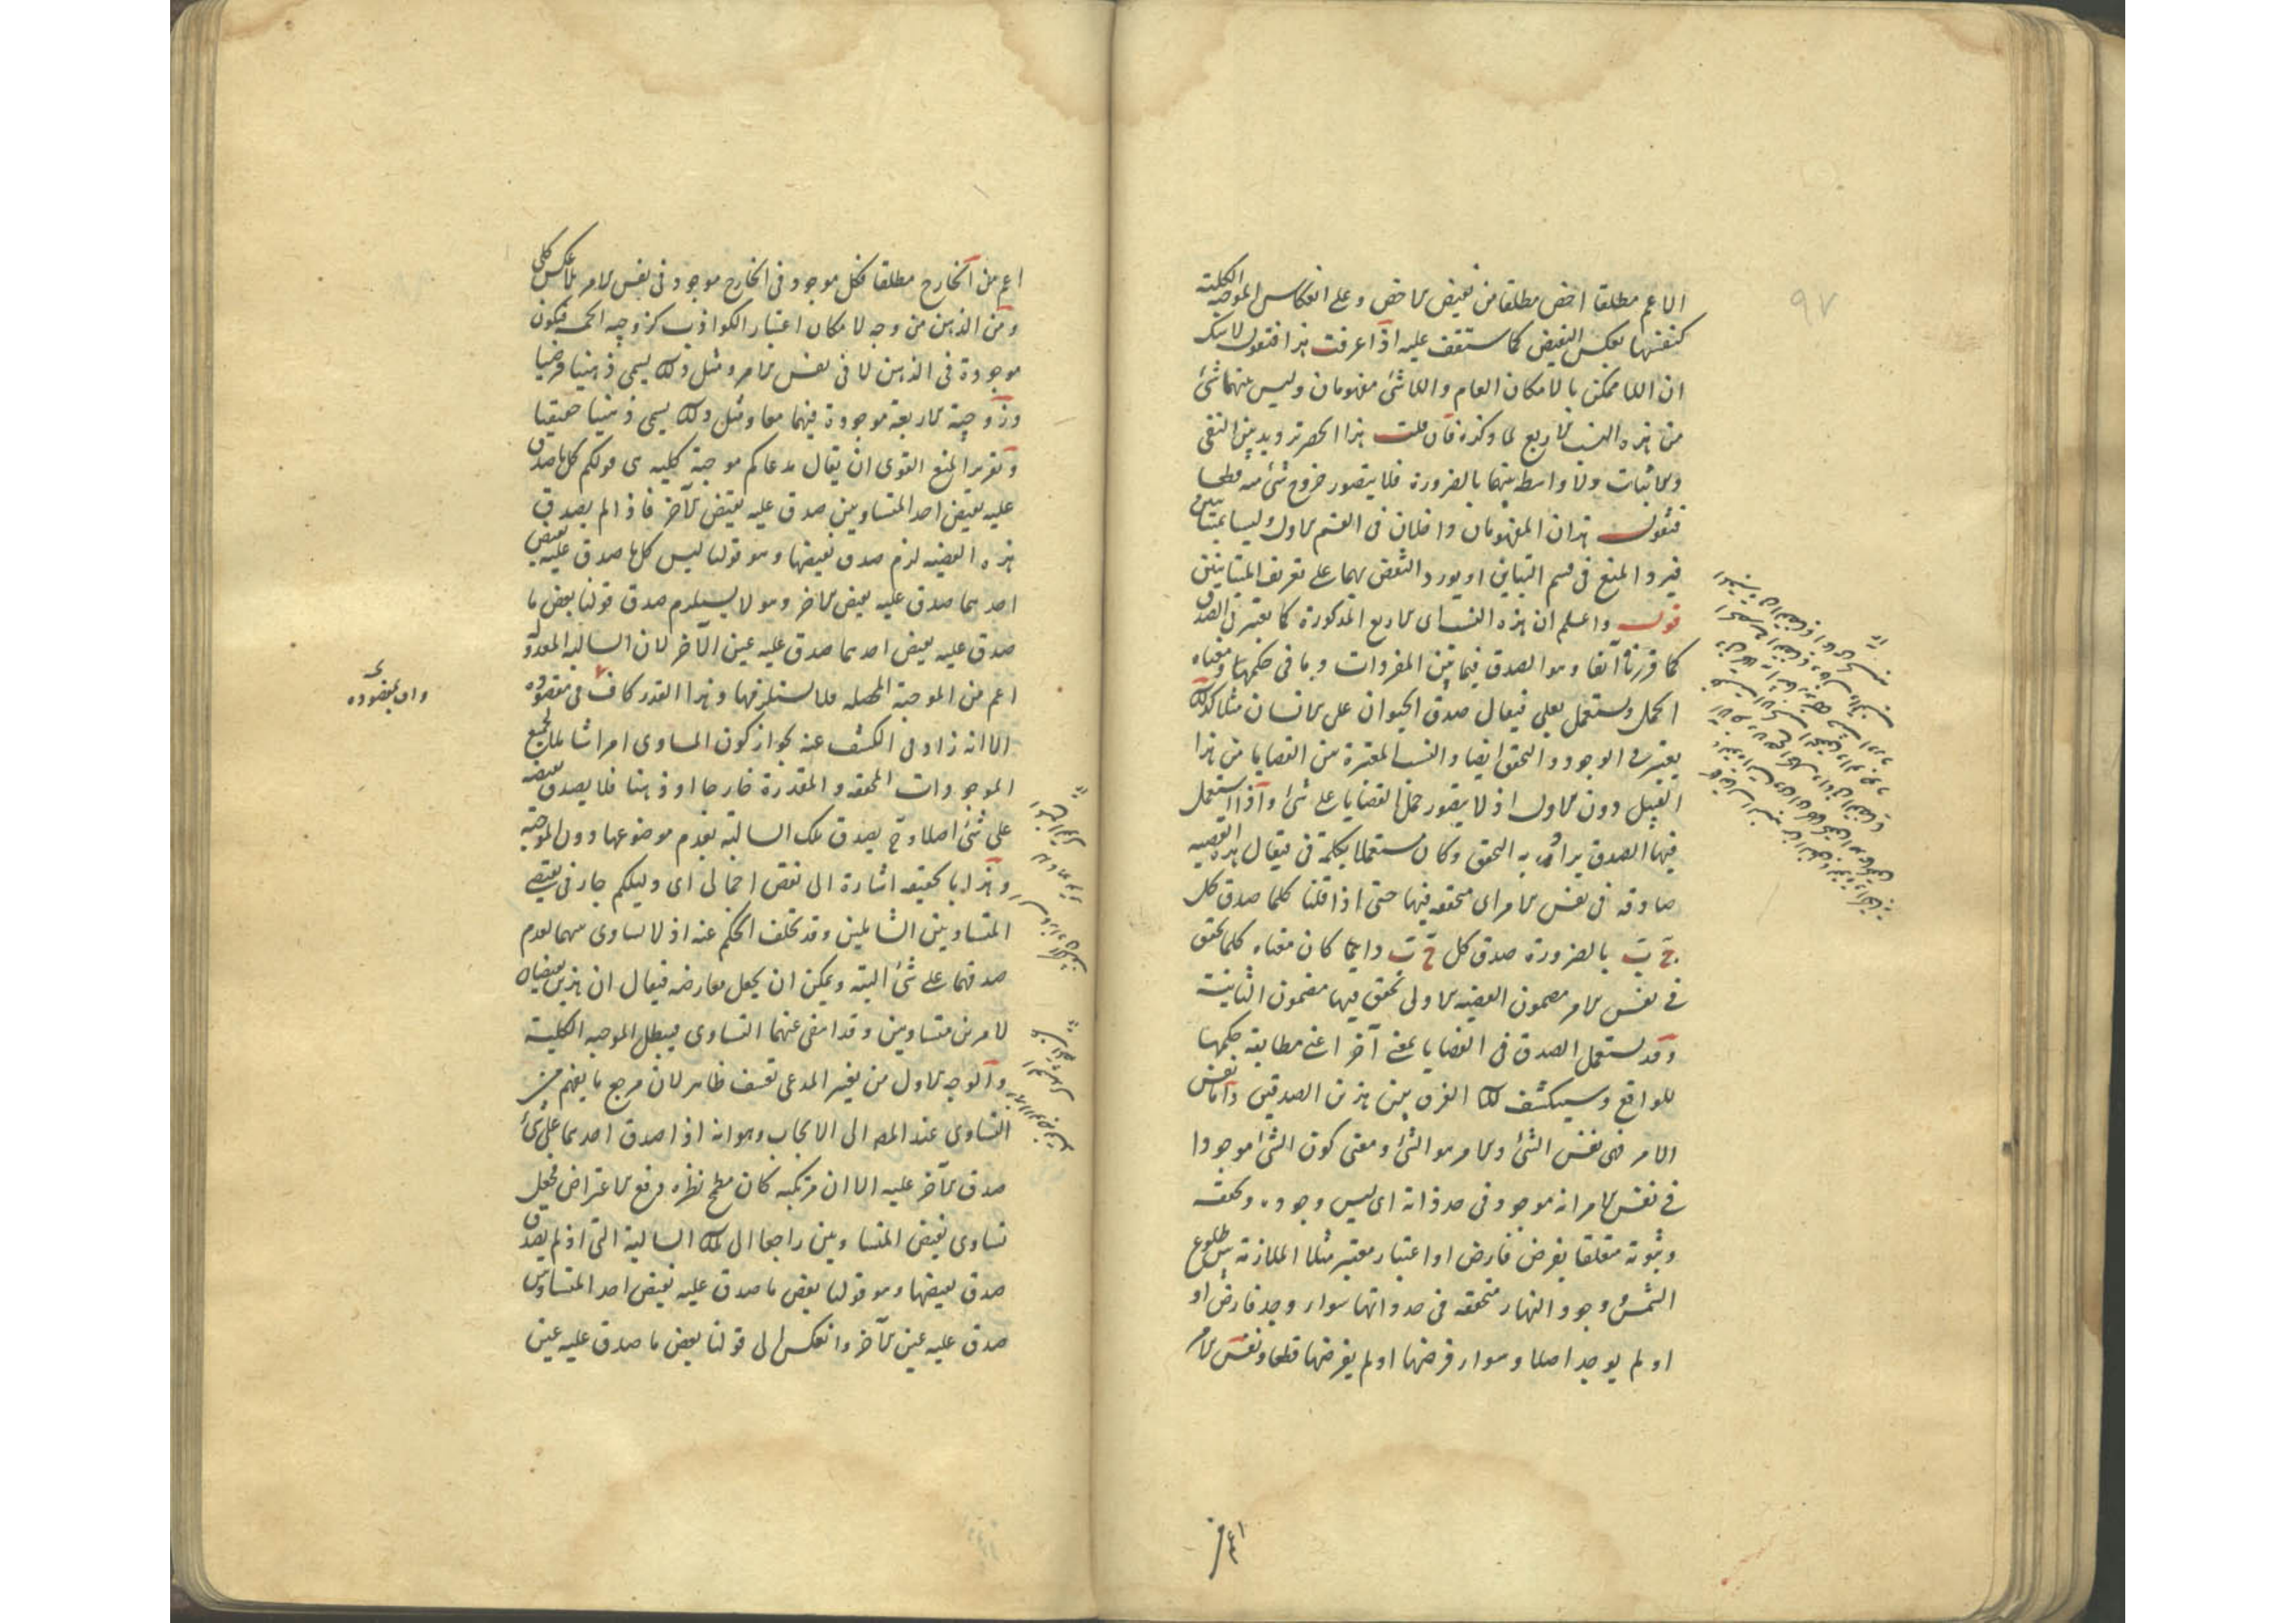 ٩٧
الاعم مطلقا اخص مطلقا من نقيض الاخص وعلى انعكاس الموجبة الكلية
كنفسها بعكس النقيض كما ستقف عليه اذا عرفت هذا فنقول لا شك
ان اللاممكن بالامكان العام واللاشئ مفهومان وليس بينهما شئ
من هذه النسب الاربع لما ذكره فان قلت هذا الحصر ترديد بين النفى
والاثبات ولا واسطة بينهما بالضرورة فلا يتصور خروج شئ منه قطعا
فنقول هذان المفهومان داخلان فى القسم الاول وليسا بمتباينين
فيرد المنع فى قسم التباين او يورد النقض بهما على تعريف المتباينين
قوله واعلم ان هذه النسب الاربع المذكورة كما يعتبر فى الصدق
كما قررناه آنفا وهو الصدق فيما بين المفردات وما فى حكمها ومعناه
الحمل ويستعمل بعلى فيقال صدق الحيوان على الانسان مثلا كذلك
يعتبر فى الوجود والتحقق ايضا والنسب المعتبرة بين القضايا من هذا
القبيل دون الاول اذ لا يتصور حمل القضايا على شئ واذا استعمل
فيها الصدق يراد به التحقق وكان مستعملا بكلمة فى فيقال هذه القضية
صادقة فى نفس الامر اى متحققة فيها حتى اذا قلنا كلما صدق كل
ج ب بالضرورة صدق كل ج ب دائما كان معناه كلما تحقق
فى نفس الامر مضمون القضية الاولى تحقق فيها مضمون الثانية
وقد يستعمل الصدق فى القضايا بمعنى آخر اعنى مطابقة حكمها
للواقع وسينكشف لك الفرق بين هذين الصدقين واما نفس
الامر فهى نفس الشئ والامر هو الشئ ومعنى كون الشئ موجودا
فى نفس الامر انه موجود فى حد ذاته اى ليس وجوده وتحققه
وثبوته متعلقا بفرض فارض او اعتبار معتبر مثلا الملازمة بين طلوع
الشمس ووجود النهار متحققة فى حد ذاتها سواء وجد فارض او
او لم يوجد اصلا وسواء فرضها او لم يفرضها قطعا ونفس الامر
اعم من الخارج مطلقا فكل موجود فى الخارج موجود فى نفس الامر بلا عكس كلى
ومن الذهن من وجه لامكان اعتبار الكواذب كزوجية الخمسة فيكون
موجودة فى الذهن لا فى نفس الامر ومثل ذلك يسمى ذهنيا فرضيا
وزوجية الاربعة موجودة فيهما معا ومثل ذلك يسمى ذهنيا حقيقيا
وتقرير المنع القوى ان يقال مدعاكم موجبة كلية هى قولكم كل ما صدق
عليه نقيض احد المتساويين صدق عليه نقيض الآخر فاذا لم يصدق
هذه القضية لزم صدق نقيضها وهو قولنا ليس كل ما صدق عليه نقيض
احدهما صدق عليه نقيض الاخر وهو لا يستلزم صدق قولنا بعض ما
صدق عليه نقيض احدهما صدق عليه عين الآخر لان السالبة المعدولة
اعم من الموجبة المحصلة فلا يستلزمها وهذا القدر كاف فى مقصوده
الا انه زاد فى الكشف عنه بجواز كون المساوى امرا شاملا لجميع
الموجودات المحققة والمقدرة خارجا او ذهنا فلا يصدق نقيضه
على شئ اصلا وح يصدق تلك السالبة بعدم موضوعها دون الموجبة
وهذا بالحقيقة اشارة الى نقض اجمالى اى دليلكم جار فى نقيضى
المتساويين الشاملين وقد تخلف الحكم عنه اذ لا تساوى بينهما لعدم
صدقهما على شئ البتة ويمكن ان يجعل معارضة فيقال ان هذين نقيضان
لامرين متساويين وقد انتفى عنهما التساوى فيبطل الموجبة الكلية
والوجه الاول من تغيير المدعى تعسف ظاهر لان مرجع ما يفهم من
التساوى عند المص الى الايجاب وهو انه اذا صدق احدهما على شئ
صدق الآخر عليه الا ان مرتكبه كان مطمح نظره دفع الاعتراض فجعل
تساوى نقيض المتساويين راجعا الى تلك السالبة التى اذ لم يصدق
صدق نقيضها وهو قولنا بعض ما صدق عليه نقيض احد المتساويين
صدق عليه عين الآخر وانعكس الى قولنا بعض ما صدق عليه عين